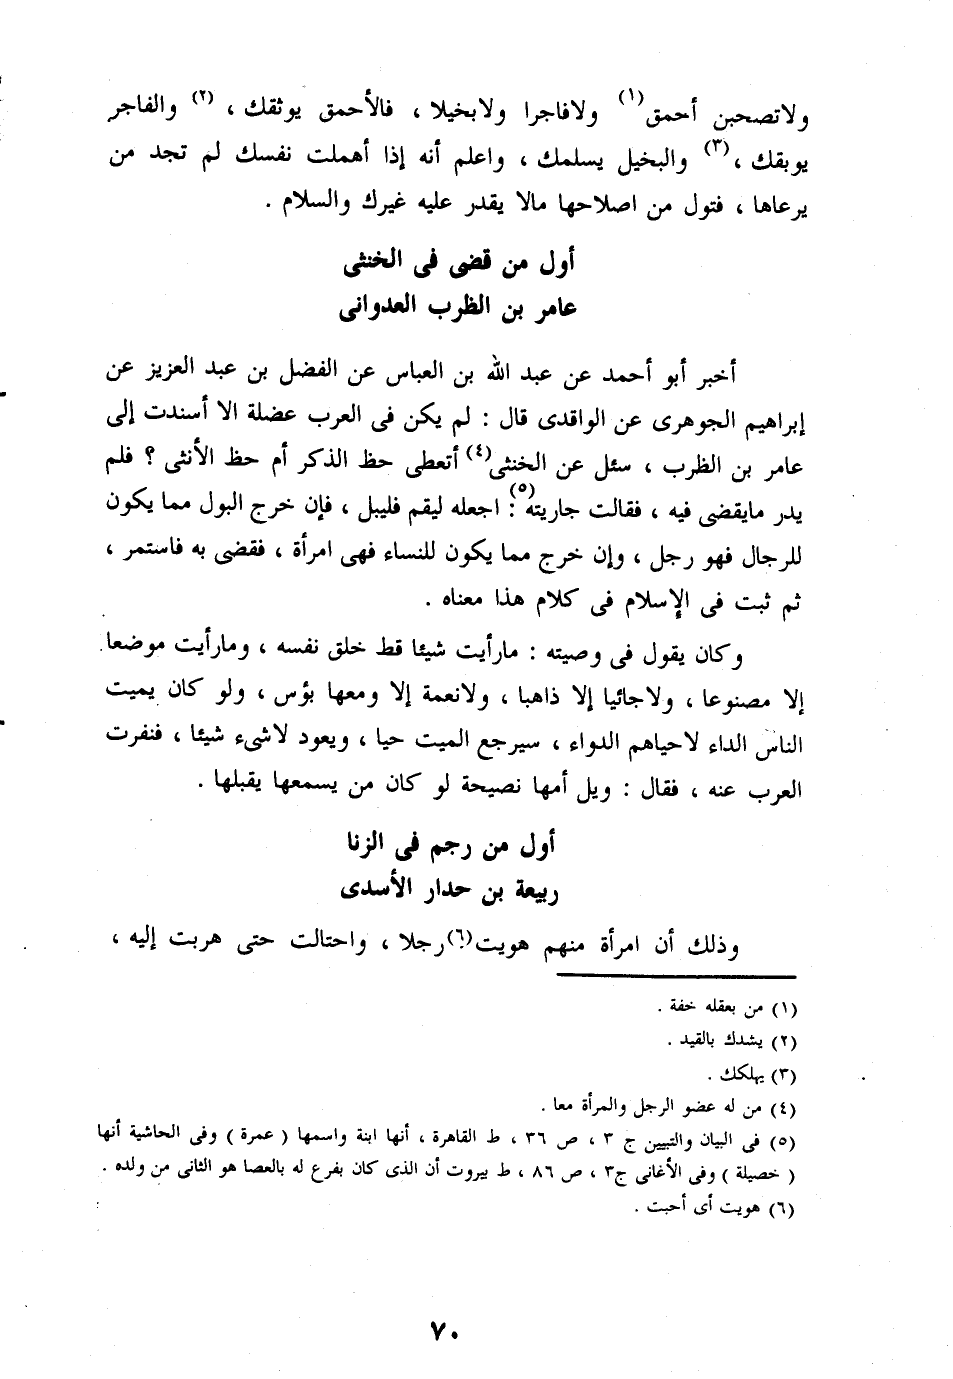 ولاتصحبن أحمق(١) ولافاجرا ولابخيلا ، فالأحمق يوثقك ، (٢) والفاجر
يوبقك ،(٣) والبخيل يسلمك ، واعلم أنه إذا أهملت نفسك لم تجد من
يرعاها ، فتول من اصلاحها مالا يقدر عليه غيرك والسلام .
أول من قضى فى الخنثى
عامر بن الظرب العدوانى
أخبر أبو أحمد عن عبد الله بن العباس عن الفضل بن عبد العزيز عن
إبراهيم الجوهرى عن الواقدى قال : لم يكن فى العرب عضلة الا أسندت إلى
عامر بن الظرب ، سئل عن الخنثى(٤) أتعطى حظ الذكر أم حظ الأنثى ؟ فلم
يدر مايقضى فيه ، فقالت جاريته(٥): اجعله ليقم فليبل ، فإن خرج البول مما يكون
للرجال فهو رجل ، وإن خرج مما يكون للنساء فهى امرأة ، فقضى به فاستمر ،
ثم ثبت فى الإسلام فى كلام هذا معناه .
وكان يقول فى وصيته : مارأيت شيئا قط خلق نفسه ، ومارأيت موضعا
إلا مصنوعا ، ولاجائيا إلا ذاهبا ، ولانعمة إلا ومعها بؤس ، ولو كان يميت
الناس الداء لاحياهم الدواء ، سيرجع الميت حيا ، ويعود لاشىء شيئا ، فنفرت
العرب عنه ، فقال : ويل أمها نصيحة لو كان من يسمعها يقبلها .
أول من رجم فى الزنا
ربيعة بن حدار الأسدى
وذلك أن امرأة منهم هويت(٦) رجلا ، واحتالت حتى هربت إليه ،
(١) من بعقله خفة .
(٢) يشدك بالقيد .
(٣) يهلكك .
(٤) من له عضو الرجل والمرأة معا .
(٥) فى البيان والتبيين ج ٣ ، ص ٣٦ ، ط القاهرة ، أنها ابنة واسمها ( عمرة ) وفى الحاشية أنها
( خصيلة ) وفى الأغانى ج٣ ، ص ٨٦ ، ط بيروت أن الذى كان يفرع له بالعصا هو الثانى من ولده .
(٦) هويت أى أحبت .
٧٠